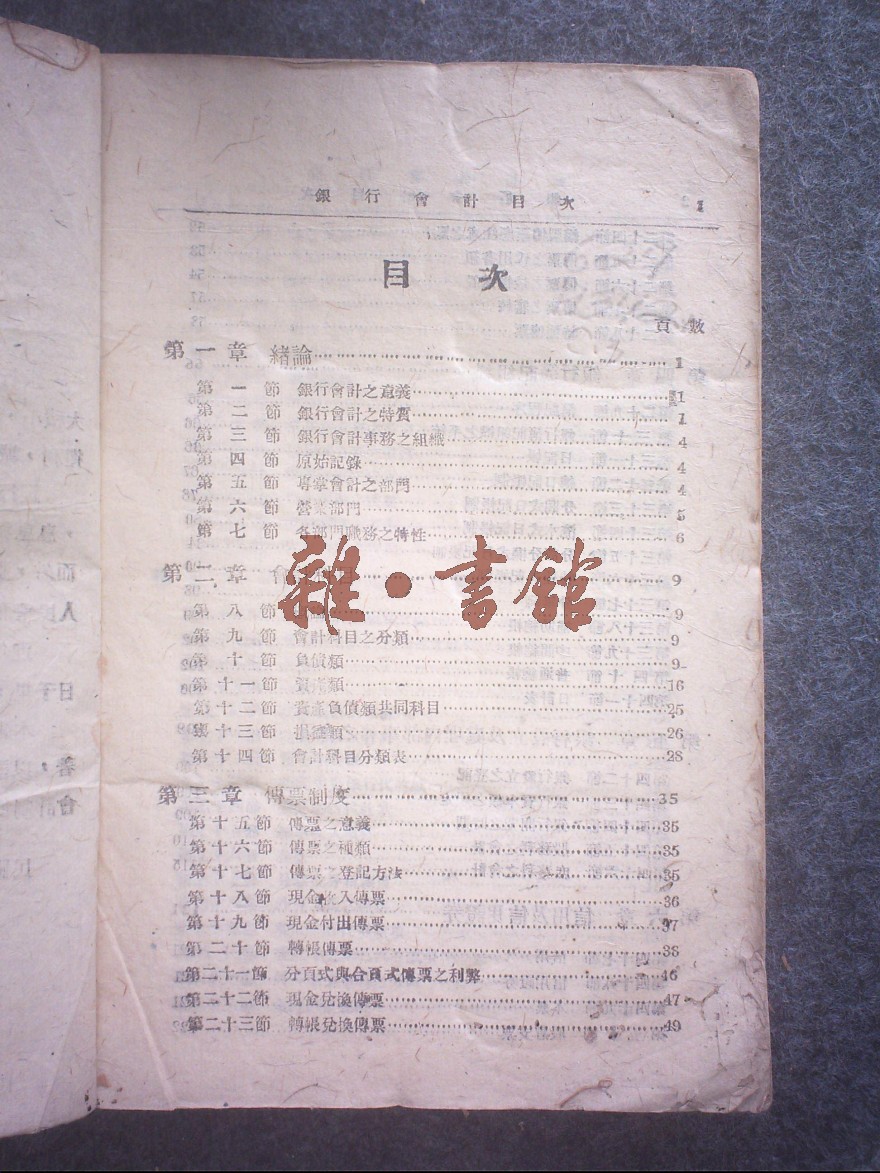 銀行會計目次 1
目次
頁數
第一章 緒論 1
第一節 銀行會計之意義 1
第二節 銀行會計之特質 1
第三節 銀行會計事務之組織 4
第四節 原始記錄 4
第五節 專掌會計之部門 4
第六節 營業部門 5
第七節 各部門職務之特性 6
第二章 會 9
雜·書館
第八節 9
第九節 會計科目之分類 9
第十節 負債類 9
第十一節 資產類 16
第十二節 資產負債類共同科目 25
第十三節 損益類 26
第十四節 會計科目分類表 28
第三章 傳票制度 35
第十五節 傳票之意義 35
第十六節 傳票之種類 35
第十七節 傳票之登記方法 35
第十八節 現金收入傳票 36
第十九節 現金付出傳票 37
第二十節 轉帳傳票 38
第二十一節 分頁式與合頁式傳票之利弊 46
第二十二節 現金兌換傳票 47
第二十三節 轉帳兌換傳票 49